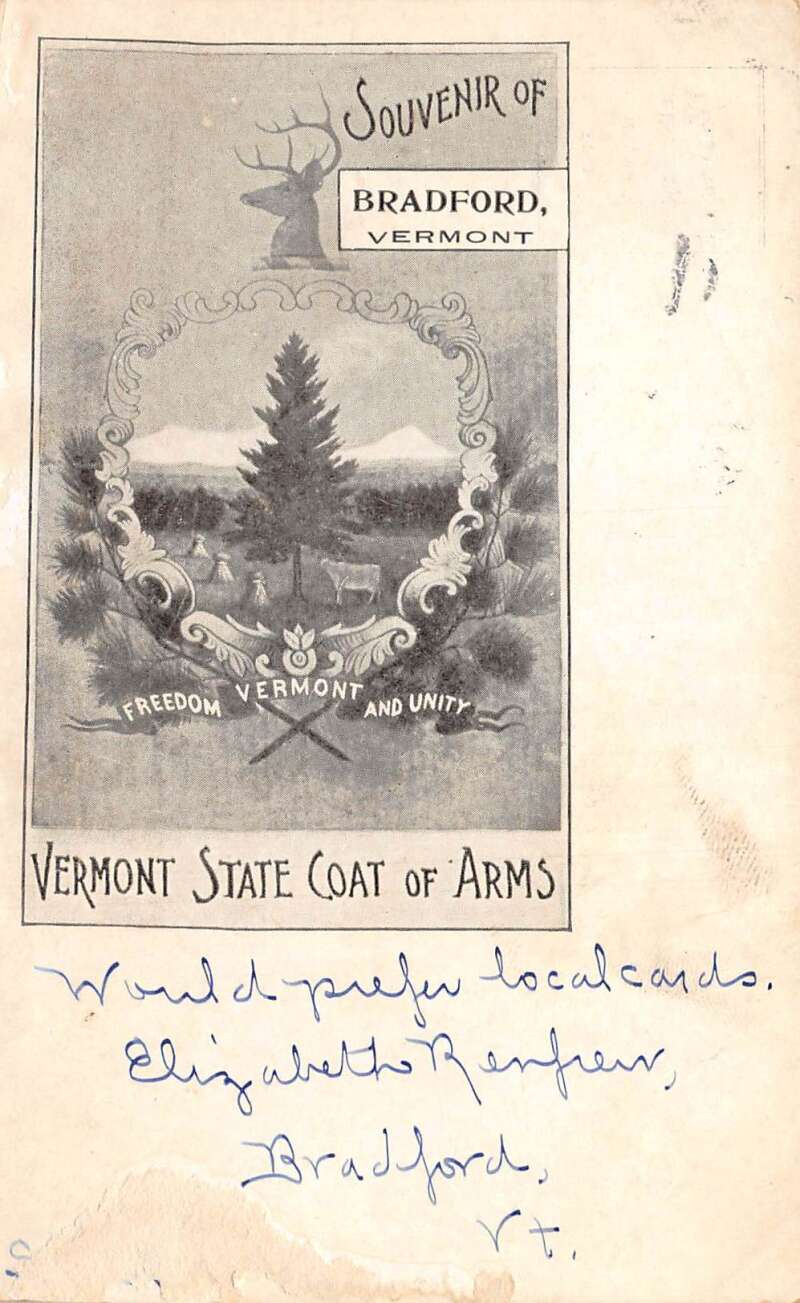 SOUVENIR OF
BRADFORD,
VERMONT
FREEDOM VERMONT AND UNITY
VERMONT STATE COAT OF ARMS
Would prefer local cards.
Elizabeth Renfrew,
Bradford,
Vt.